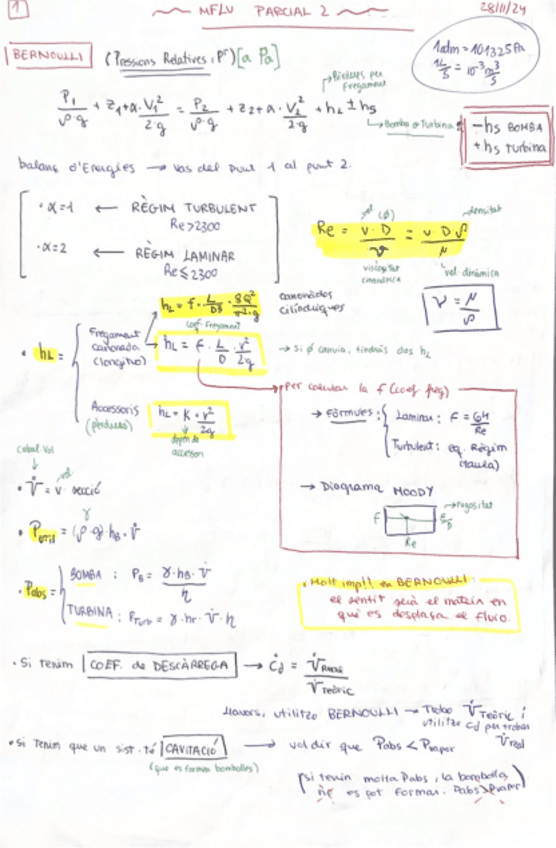 1
MFLU PARCIAL 2
28/11/24
BERNOULLI (Pressions Relatives: Pʳ) [a Pa]
1atm = 101325 Pa
1 L/s = 10⁻³ m³/s
Pèrdues per fregament
P₁/ρ·g + z₁ + α·V₁²/2·g = P₂/ρ·g + z₂ + α·V₂²/2·g + hL ± hs
Bomba o Turbina
- hs BOMBA
+ hs turbina
balanç d'Energies → vas del punt 1 al punt 2.
· α=1 ← RÈGIM TURBULENT
Re > 2300
· α=2 ← RÈGIM LAMINAR
Re ≤ 2300
vel (Ø) densitat
Re = v·D/ν = v·D·ρ/μ
viscositat cinemàtica
vel. dinàmica
ν = μ/ρ
hL = f · L/D⁵ · 8Q²/π²·g canonades cilíndriques
coef. fregament
· hL =
Fregament canonada (longitud)
hL = f · L/D · v²/2g → si Ø canvia, tindràs dos hL
Accessoris (pèrdues)
hL = K · v²/2g
depèn de accessori
Per calcular la f (coef freg)
→ Fórmules: Laminar: f = 64/Re
Turbulent: eq. Règim (taula)
→ Diagrama MOODY
Rugositat
f
Re
cabal vol
vel
· V̇ = v · secció
γ
· Pútil = (ρ·g)·hB·V̇
· Pabs =
BOMBA : PB = γ·hB·V̇/η
TURBINA : PTurb = γ·hT·V̇·η
· Molt imp!! en BERNOULLI:
el sentit serà el mateix en què es desplaça el fluid.
· Si tenim COEF. de DESCÀRREGA → Cd = V̇Real/V̇Teòric
llavors, utilitzo BERNOULLI → Trobo V̇Teòric i
utilitzo Cd per trobar V̇real
· Si tenim que un sist. té CAVITACIÓ → vol dir que Pabs < Pvapor
(que es formen bombolles)
(si tenim molta Pabs, la bombolla
no es pot formar. Pabs > Pvapor)